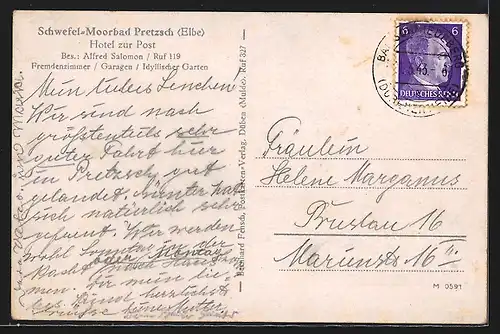 Schwefel-Moorbad Pretzsch (Elbe)
Hotel zur Post
Bes.: Alfred Salomon / Ruf 119
Fremdenzimmer / Garagen / Idyllischer Garten
Mein liebes Lenchen!
Wir sind nach
größtenteils sehr
guter Fahrt hier
in Pretzsch gut
gelandet. Günter hat
sich natürlich sehr
gefreut. Wir werden
wohl Sonntag zu der
Nacht oder Montag
nach Hause
men. Dir mein lie-
bes Kind herzlichste
Grüsse deine Mutter.
Bernhard Fensch, Postkarten-Verlag, Düben (Mulde). Ruf 327
6 6
DEUTSCHES REICH
BA
Fräulein
Helene Marganus
Breslau 16
Mariannstr. 16
M 0591